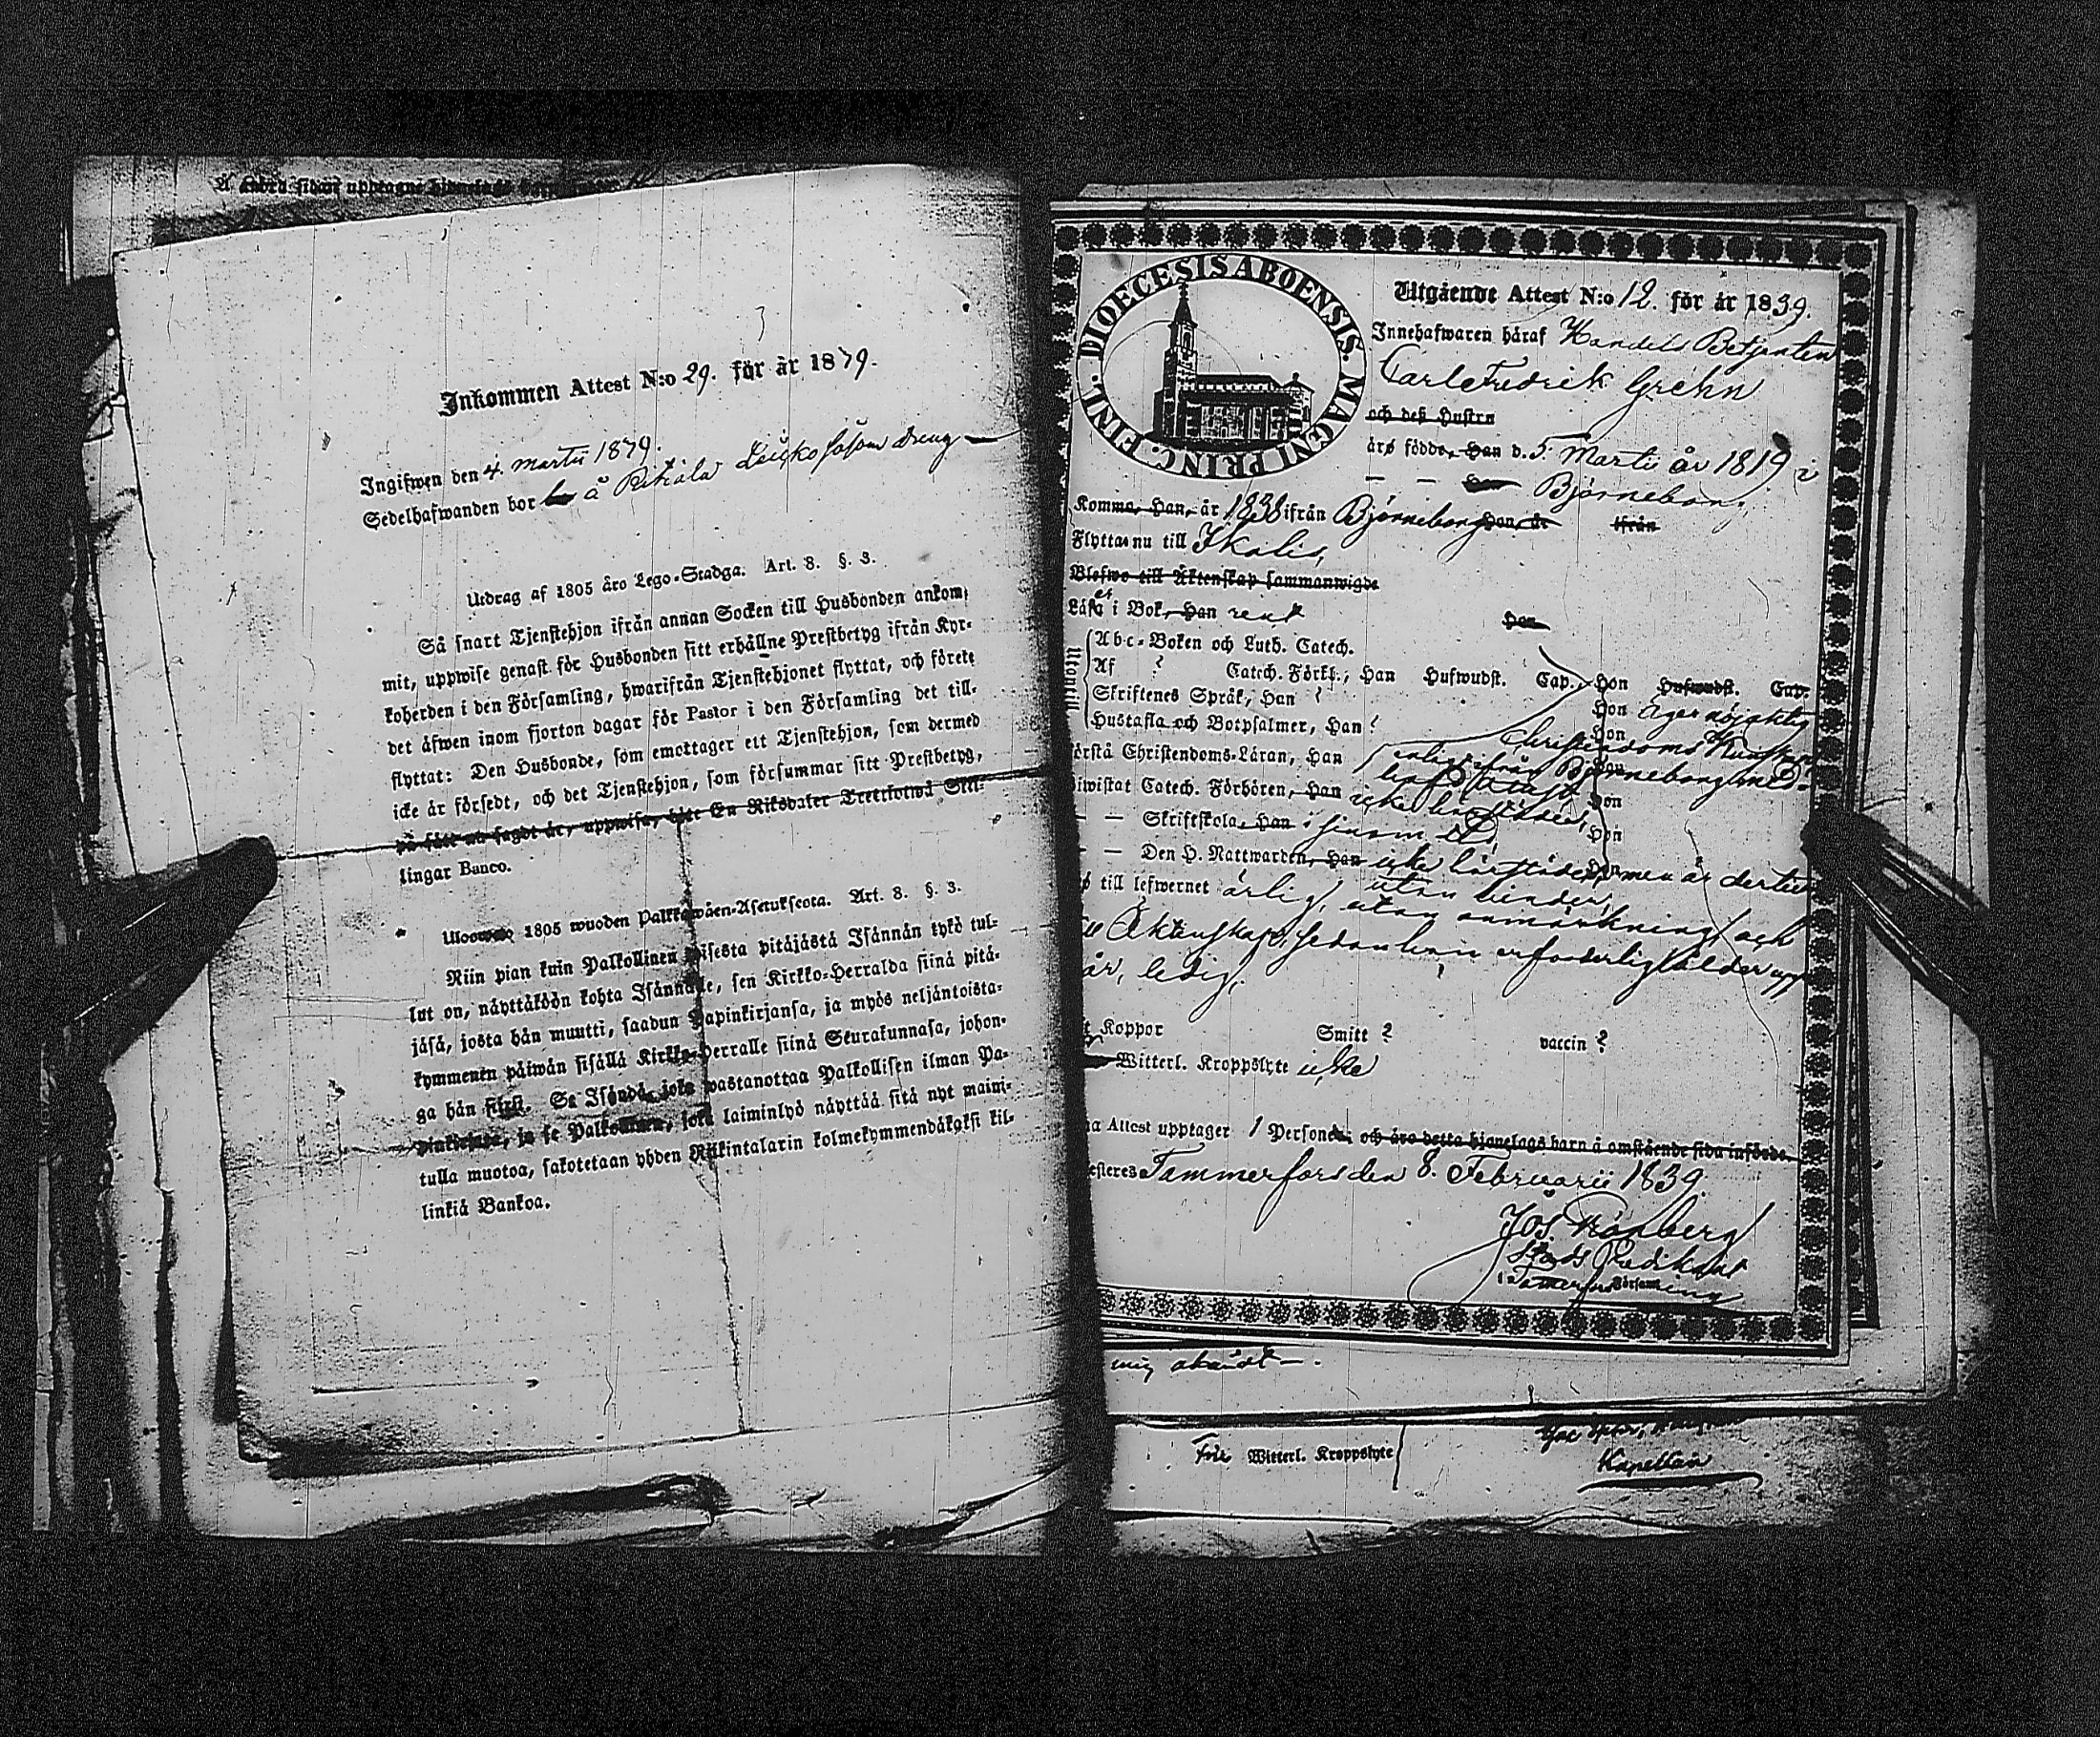 Å andra sidan upptagne hjonelags barn
Inkommen Attest N:o 29. för år 1879.
Ingifwen den 4. martii 1879.
Sedelhafwanden bor å dreng
Utdrag af 1805 åro Lego-Stadga. Art. 8. §. 3.
Så snart Tjenstehjon ifrån annan Socken till Husbonden ankom-
mit, uppwise genast för Husbonden sitt erhållne Prestbetyg ifrån Kyr-
koherden i den Församling, hwarifrån Tjenstehjonet flyttat, och förete
det äfwen inom fjorton dagar för Pastor i den Församling det till-
flyttat: Den Husbonde, som emottager ett Tjenstehjon, som dermed
icke är försedt, och det Tjenstehjon, som försummar sitt Prestbetyg,
på sätt nu sagdt är, uppwisa, böte En Riksdaler Trettiotwå Skil-
lingar Banco.
Uloswedo 1805 wuoden Palkkawäen-Asetuksesta. Art. 8. §. 3.
Niin pian kuin Palkollinen toisesta pitäjästä Isännän tykö tul-
lut on, näyttäköön kohta Isännälle, sen Kirkko-Herralda siinä pitä-
jäsä, josta hän muutti, saadun Papinkirjansa, ja myös neljäntoista-
kymmenen päiwän sisällä Kirkko-Herralle siinä Seurakunnasa, johon-
ga hän siirsi. Se Isändä, joka wastanottaa Palkollisen ilman Pa-
pinkirjata, ja se Palkollinen, joka laiminlyö näyttää sitä nyt maini-
tulla muotoa, sakotetaan yhden Riikintalarin kolmekymmendäkaksi kil-
linkiä Bankoa.
DIOECESIS ABOENSIS. MAGNI PRINC. FINL.
Utgående Attest N:o 12. för år 1839.
Innehafwaren häraf Handels Betjenten
Carl Fredrik Grehn
och deß Hustru
äro födde, Han d. 5 Martii år 1819 i
— — Hon Björneborg
Komma, Han, år 1838 ifrån Björneborg Hon, år ifrån
Flyttas nu till Ikalis,
Blefwo till Äktenskap sammanwigde
Läsa i Bok, Han rent Hon
Utontill
Abc-Boken och Luth. Catech.
Af ? Catech. Förkl., Han Hufwudst. Cap., Hon Hufwudst. Cap.
Skriftenes Språk, Han ? Hon äger nöjaktig
Hustafla och Botpsalmer, Han ? Hon Christendoms Kunskap
örstå Christendoms-Läran, Han enligt ifrån Björneborg med-
iwistat Catech. Förhören, Han icke härstädes, Hon
— — Skriftskola, Han Hon
— — Den H. Nattwarden, Han icke härstädes, men är dertill
till lefwernet ärlig, utan hinder,
utan anmärkning, och
Äktenskap, sedan han erforderlig ålder upp
år, ledig.
Koppor Smitt ? vaccin ?
Witterl. Kroppslyte icke
na Attest upptager 1 Personer och äro detta hjonelags barn å omstående sida införde.
esteres Tammerfors den 8. Februarii 1839.
Jos. Grönberg
Stads Predikant
i Tamerfors Församling
mig
Fri Witterl. Kroppslyte
Kapellan